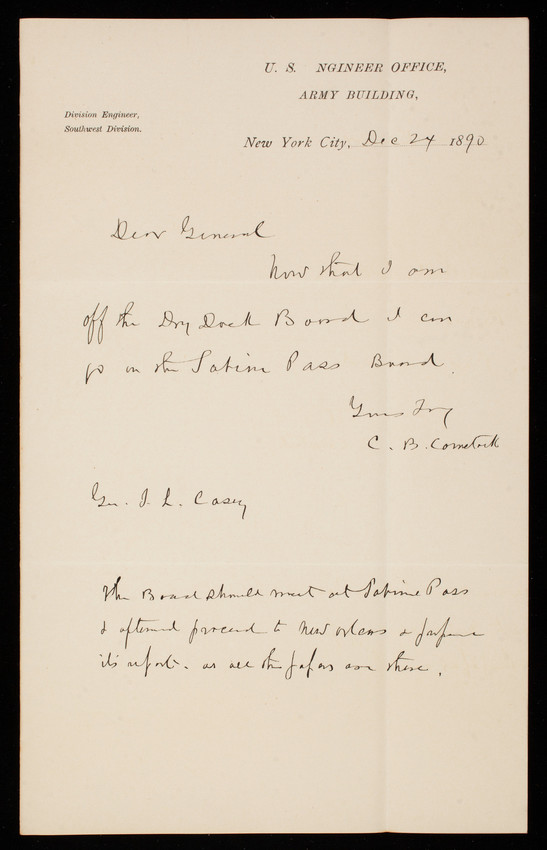 U. S. NGINEER OFFICE,
ARMY BUILDING,
Division Engineer,
Southwest Division.
New York City, Dec 24 1890
Dear General
Now that I am
off the Dry Dock Board I can
go on the Sabine Pass Board.
Yours Try
C. B. Comstock
Gen. T. L. Casey
The Board should meet at Sabine Pass
& afterward proceed to New Orleans & prepare
its report. as all the papers are there.